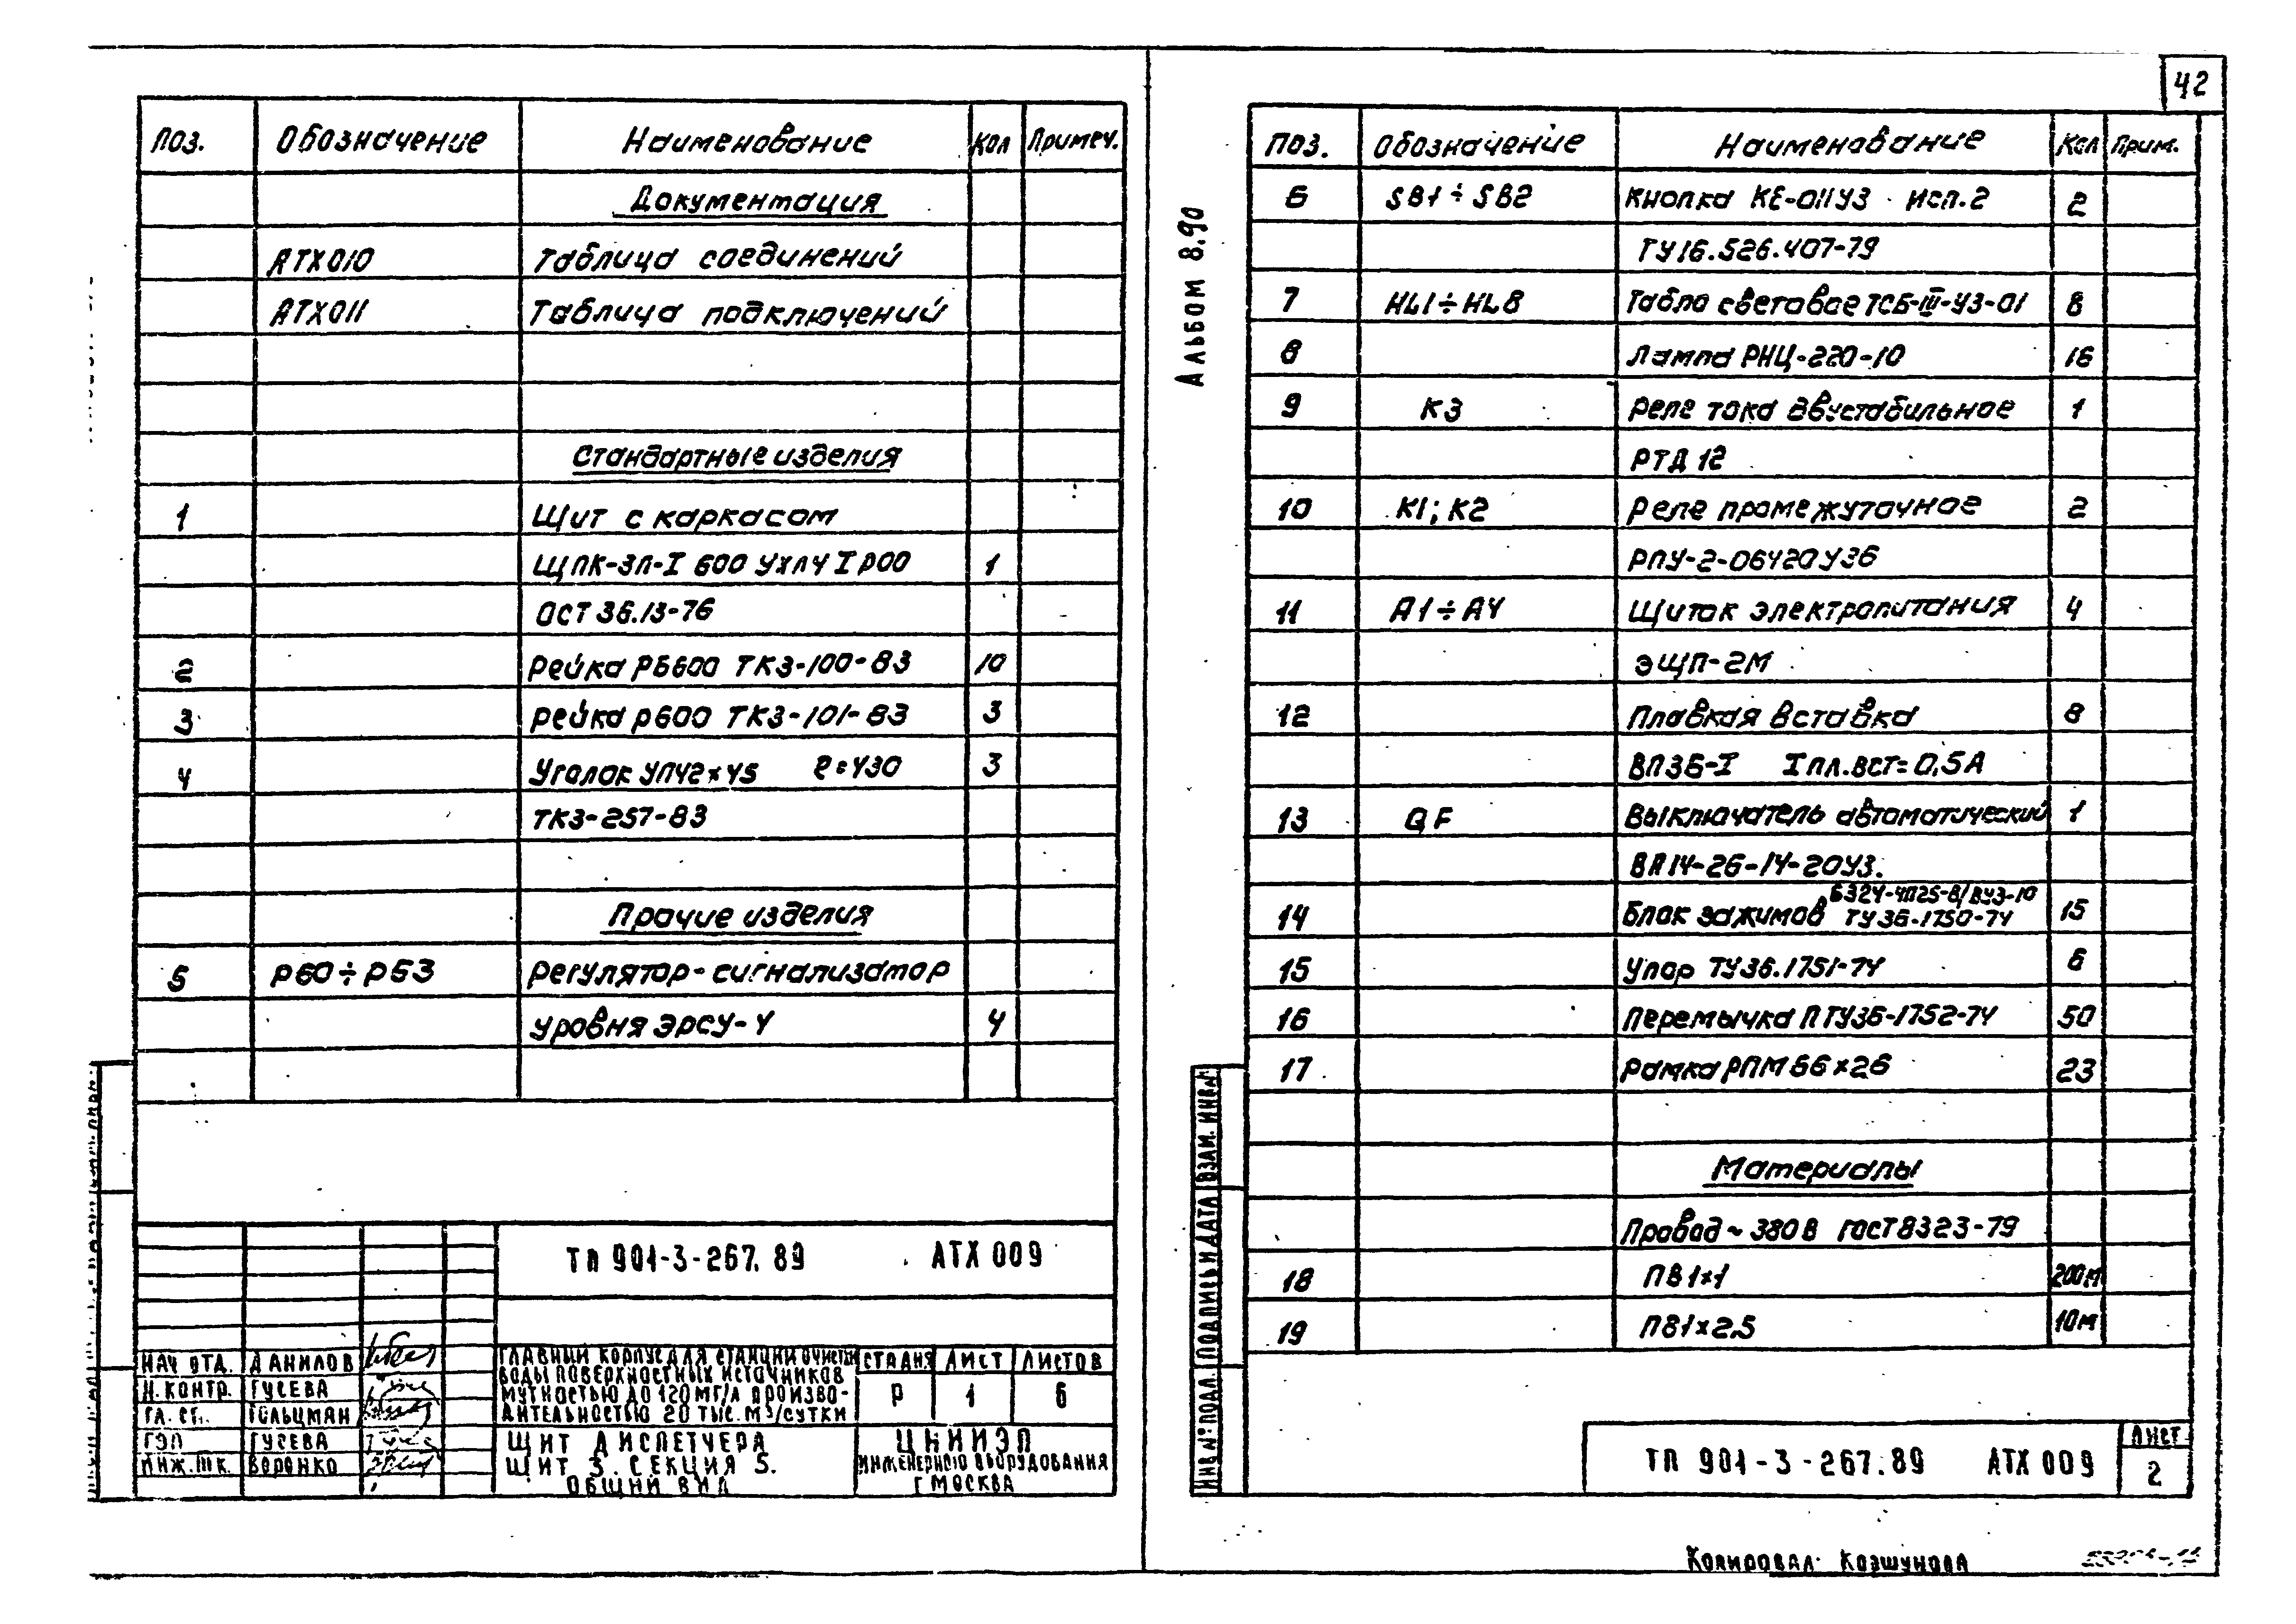 42
Поз. Обозначение Наименование Кол Примеч.
Документация
АТХ010 Таблица соединений
АТХ011 Таблица подключений
Стандартные изделия
1 Щит с каркасом
ЩПК-ЗП-I 600 УХЛ4 IP00 1
ОСТ 36.13-76
2 Рейка РБ600 ТК3-100-83 10
3 Рейка Р600 ТК3-101-83 3
4 Уголок УП42×45 ℓ=430 3
ТК3-257-83
Прочие изделия
5 Р60÷Р63 Регулятор-сигнализатор
уровня ЭРСУ-4 4
ТП 901-3-267.89 АТХ 009
НАЧ ОТД. ДАНИЛОВ
Н. КОНТР. ГУСЕВА
ГОЛЬЦМАН
ГЭП ГУСЕВА
ИНЖ. IIК. ВОРОНКО
ГЛАВНЫЙ КОРПУС ДЛЯ СТАНЦИИ ОЧИСТКИ
ВОДЫ ПОВЕРХНОСТНЫХ ИСТОЧНИКОВ
МУТНОСТЬЮ ДО 120 МГ/Л ПРОИЗВО-
ДИТЕЛЬНОСТЬЮ 20 ТЫС. М³/СУТКИ
СТАДИЯ ЛИСТ ЛИСТОВ
Р 1 6
ЩИТ ДИСПЕТЧЕРА
ЩИТ 3. СЕКЦИЯ 5.
ОБЩИЙ ВИД
ЦНИИЭП
ИНЖЕНЕРНОГО ОБОРУДОВАНИЯ
Г МОСКВА
АЛЬБОМ 8.90
Поз. Обозначение Наименование Кол Прим.
6 SB1÷SB2 Кнопка КЕ-011У3 исп.2 2
ТУ16.526.407-79
7 HL1÷HL8 Табло световое ТСБ-III-У3-01 8
8 Лампа РНЦ-220-10 16
9 К3 Реле тока двустабильное 1
РТД 12
10 К1; К2 Реле промежуточное 2
РПУ-2-06420У3Б
11 А1÷А4 Щиток электропитания 4
ЭЩП-2М
12 Плавкая вставка 8
ВП3Б-I I пл.вст=0,5А
13 QF Выключатель автоматический 1
ВА14-26-14-20У3.
14 Блок зажимов Б324-4П25-В/ВУ3-10 ТУ36.1750-74 15
15 Упор ТУ36.1751-74 6
16 Перемычка П ТУ36-1752-74 50
17 Рамка РПМ 66×26 23
Материалы
Провод ~ 380 В ГОСТ 8323-79
18 ПВ 1×1 200м
19 ПВ 1×2.5 10м
ИНВ № ПОДЛ. ПОДПИСЬ И ДАТА ВЗАМ. ИНВ №
ТП 901-3-267.89 АТХ 009
ЛИСТ
2
Копировал: Козшунова